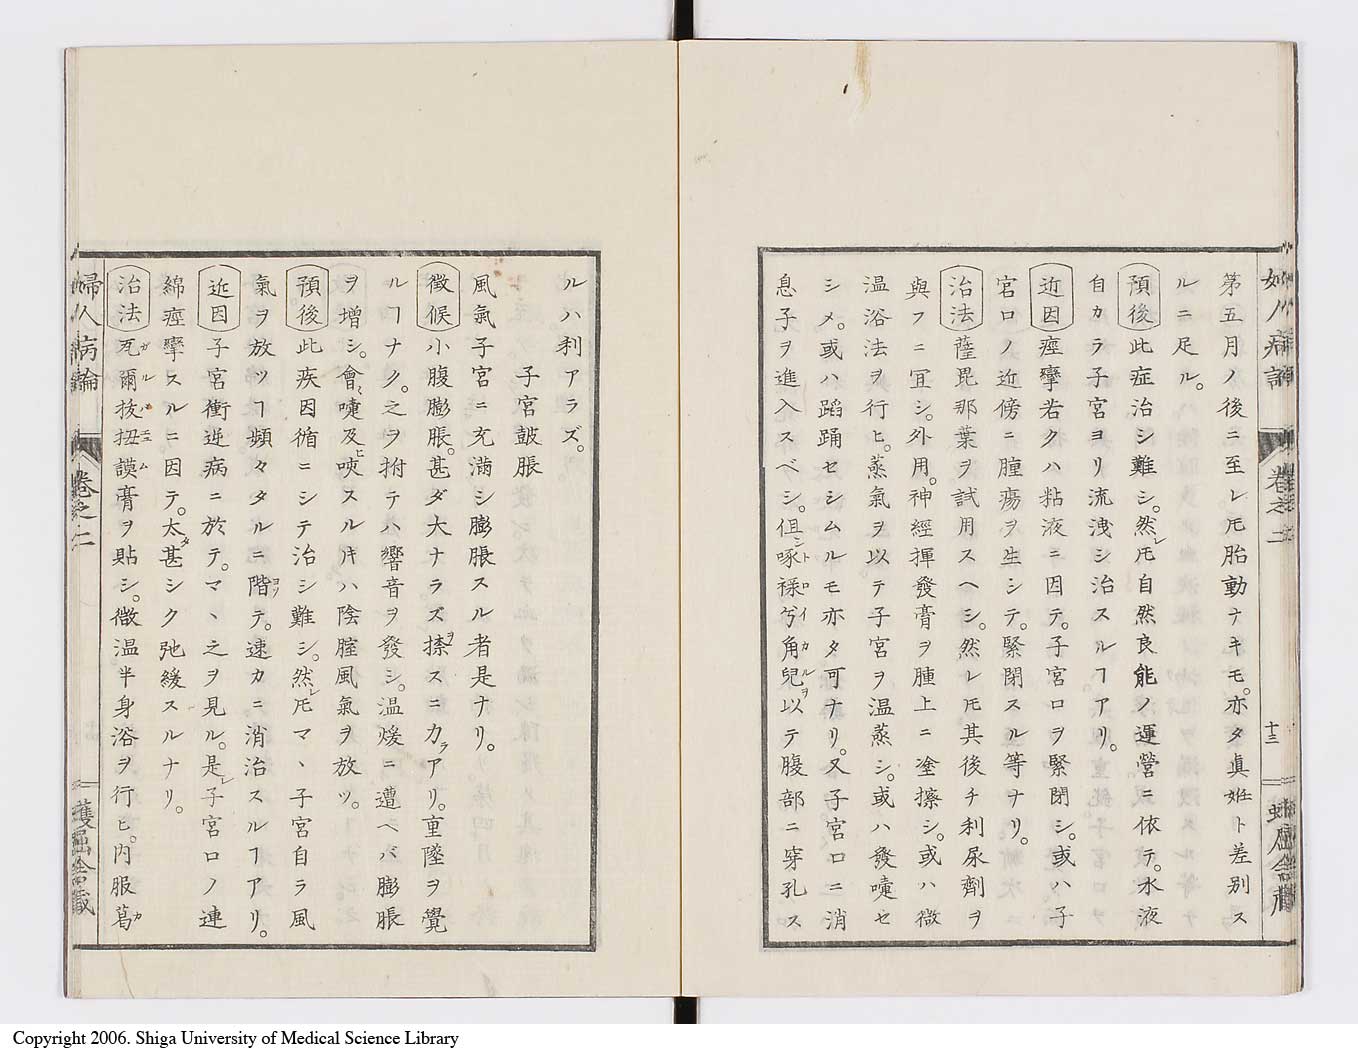 第五月ノ後ニ至レ𪜈胎動ナキモ。亦タ眞妊ト差別ス
ルニ足ル。
預後此症治シ難シ。然レ𪜈自然良能ノ運營ニ依テ。水液
自カラ子宮ヨリ流洩シ治スルヿアリ。
近因痙攣若クハ粘液ニ因テ。子宮口ヲ緊閉シ。或ハ子
宮口ノ近傍ニ腫瘍ヲ生シテ。緊閉スル等ナリ。
治法薩毘那葉ヲ試用スヘシ。然レ𪜈其後チ利尿劑ヲ
與フニ冝シ。外用。神經揮發膏ヲ腫上ニ塗擦シ。或ハ微
温浴法ヲ行ヒ。蒸氣ヲ以テ子宮ヲ温蒸シ。或ハ發嚏セ
シメ。或ハ蹈踊セシムルモ亦タ可ナリ。又子宮口ニ消
息子ヲ進入スベシ。但シ啄禄兮角兒ヲ以テ腹部ニ穿孔ス
婦人病論
卷之二
十三
ルハ利アラズ。
子宮皷脹
風氣子宮ニ充滿シ膨脹スル者是ナリ。
徴候小腹膨脹。甚ダ大ナラズ捺スニ力アリ。重墜ヲ覺
ルヿナク。之ヲ拊テハ響音ヲ發シ。温煖ニ遭ヘバ膨脹
ヲ增シ。會嚏及ヒ咳スル𪜈ハ陰腟風氣ヲ放ツ。
預後此疾因循ニシテ治シ難シ。然レ𪜈マヽ子宮自ラ風
氣ヲ放ツヿ頻々タルニ階テ。速カニ消治スルヿアリ。
近因子宮衝逆病ニ於テ。マヽ之ヲ見ル。是レ子宮口ノ連
綿痙攣スルニ因テ。太甚シク弛緩スルナリ。
治法瓦爾抜扭謨膏ヲ貼シ。微温半身浴ヲ行ヒ。内服葛
婦人病論
卷之二
蠖屈舍藏
Copyright 2006. Shiga University of Medical Science Library